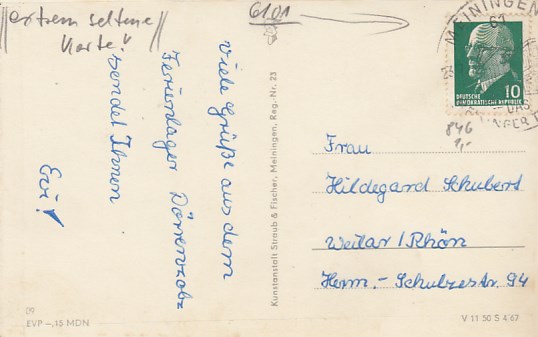 "extrem seltene
Karte"
6101
Viele Grüße aus dem
Ferienlager Dörrensolz
sendet Ihnen
Evi!
Kunstanstalt Straub & Fischer, Meiningen, Reg.-Nr. 23
MEININGEN
61
DEUTSCHE
DEMOKRATISCHE REPUBLIK
10
846
1,-
Frau
Hildegard Schubert
Weilar/Rhön
Herm.-Schulzestr. 94
09
EVP -,15 MDN
V 11 50 S 4 67